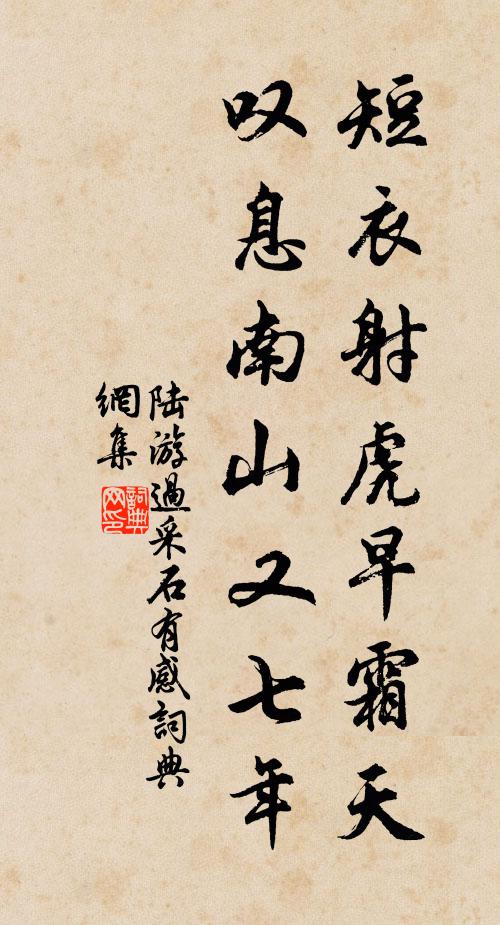 短衣射虎早霜天
叹息南山又七年
陆游過采石有感詞典
網集
詞典
网印